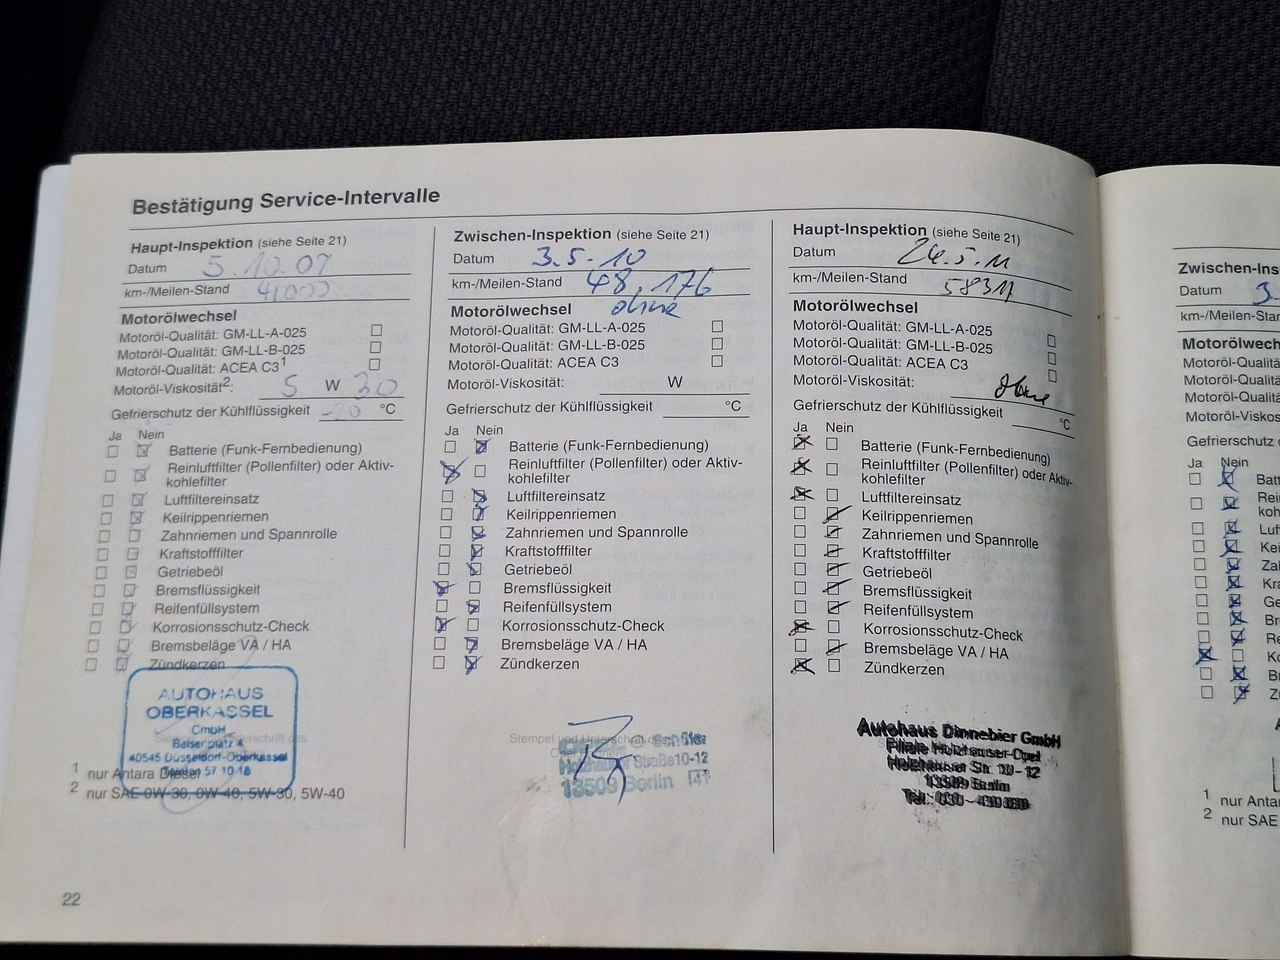 Bestätigung Service-Intervalle
Haupt-Inspektion (siehe Seite 21)
Datum 5.10.09
km-/Meilen-Stand 41000
Motorölwechsel
Motoröl-Qualität: GM-LL-A-025
Motoröl-Qualität: GM-LL-B-025
Motoröl-Qualität: ACEA C3¹
Motoröl-Viskosität²: 5 W 30
Gefrierschutz der Kühlflüssigkeit -20 °C
Ja Nein
Batterie (Funk-Fernbedienung)
Reinluftfilter (Pollenfilter) oder Aktiv-
kohlefilter
Luftfiltereinsatz
Keilrippenriemen
Zahnriemen und Spannrolle
Kraftstofffilter
Getriebeöl
Bremsflüssigkeit
Reifenfüllsystem
Korrosionsschutz-Check
Bremsbeläge VA / HA
Zündkerzen
AUTOHAUS
OBERKASSEL
GmbH
Belserplatz 4
40545 Düsseldorf-Oberkassel
57 10 18
1 nur Antara Diesel
2 nur SAE 0W-30, 0W-40, 5W-30, 5W-40
22
Zwischen-Inspektion (siehe Seite 21)
Datum 3.5.10
km-/Meilen-Stand 48.176
Motorölwechsel ohne
Motoröl-Qualität: GM-LL-A-025
Motoröl-Qualität: GM-LL-B-025
Motoröl-Qualität: ACEA C3
Motoröl-Viskosität: W
Gefrierschutz der Kühlflüssigkeit °C
Ja Nein
Batterie (Funk-Fernbedienung)
Reinluftfilter (Pollenfilter) oder Aktiv-
kohlefilter
Luftfiltereinsatz
Keilrippenriemen
Zahnriemen und Spannrolle
Kraftstofffilter
Getriebeöl
Bremsflüssigkeit
Reifenfüllsystem
Korrosionsschutz-Check
Bremsbeläge VA / HA
Zündkerzen
Stempel und Unterschrift des
Straße 10-12
13509 Berlin
Haupt-Inspektion (siehe Seite 21)
Datum 24.5.11
km-/Meilen-Stand 58317
Motorölwechsel
Motoröl-Qualität: GM-LL-A-025
Motoröl-Qualität: GM-LL-B-025
Motoröl-Qualität: ACEA C3
Motoröl-Viskosität: ohne
Gefrierschutz der Kühlflüssigkeit °C
Ja Nein
Batterie (Funk-Fernbedienung)
Reinluftfilter (Pollenfilter) oder Aktiv-
kohlefilter
Luftfiltereinsatz
Keilrippenriemen
Zahnriemen und Spannrolle
Kraftstofffilter
Getriebeöl
Bremsflüssigkeit
Reifenfüllsystem
Korrosionsschutz-Check
Bremsbeläge VA / HA
Zündkerzen
Autohaus Dinnebier GmbH
Filiale Holzhauser-Opel
Holzhauser Str. 10-12
13509 Berlin
Tel.: 030 -
Zwischen-Ins
Datum 3.
km-/Meilen-Star
Motorölwechs
Motoröl-Qualitä
Motoröl-Qualitä
Motoröl-Qualitä
Motoröl-Viskosi
Gefrierschutz d
Ja Nein
Batt
Rein
kohl
Luft
Kei
Zal
Kra
Ge
Br
Re
Ko
Br
Z
1 nur Anta
2 nur SAE